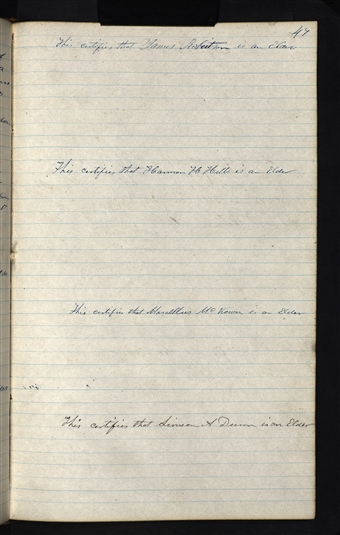 47
This certifies that James Robertson is an Elder
This certifies that Harmon H Hills is an Elder
This certifies that Marcellus McKown is an Elder
This certifies that Simeon A Dunn is an Elder